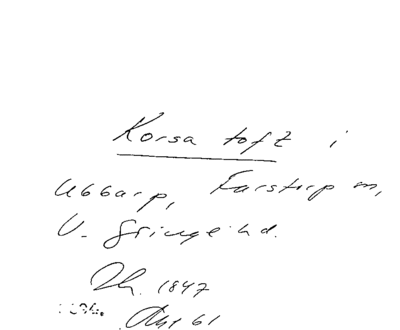 Korsa toft i
Ubbarp, Farstorp sn,
V. Göinge hd.
1847
61